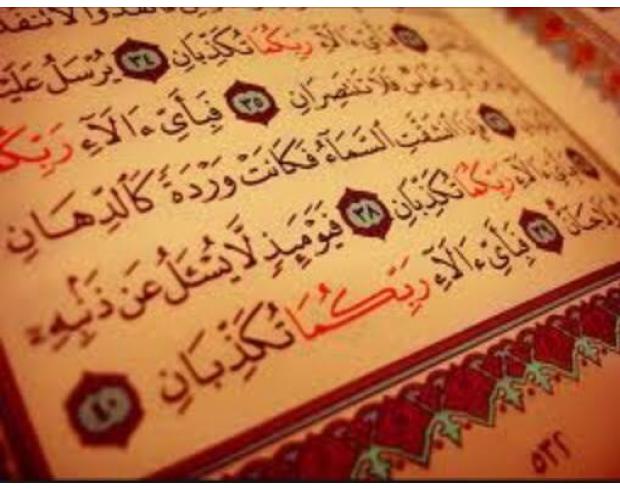 فَبِأَيِّ ءَالَآءِ رَبِّكُمَا تُكَذِّبَانِ ٣٤ يُرْسَلُ عَلَيْ
وَنُحَاسٌ فَلَا تَنتَصِرَانِ ٣٥ فَبِأَيِّ ءَالَآءِ رَبِّكُ
فَإِذَا ٱنشَقَّتِ ٱلسَّمَآءُ فَكَانَتْ وَرْدَةً كَٱلدِّهَانِ
فَبِأَيِّ ءَالَآءِ رَبِّكُمَا تُكَذِّبَانِ ٣٨ فَيَوْمَئِذٍ لَّا يُسْـَٔلُ عَن ذَنۢبِهِۦٓ
وَلَا جَآنٌّ ٣٩ فَبِأَيِّ ءَالَآءِ رَبِّكُمَا تُكَذِّبَانِ ٤٠
٥٣٢